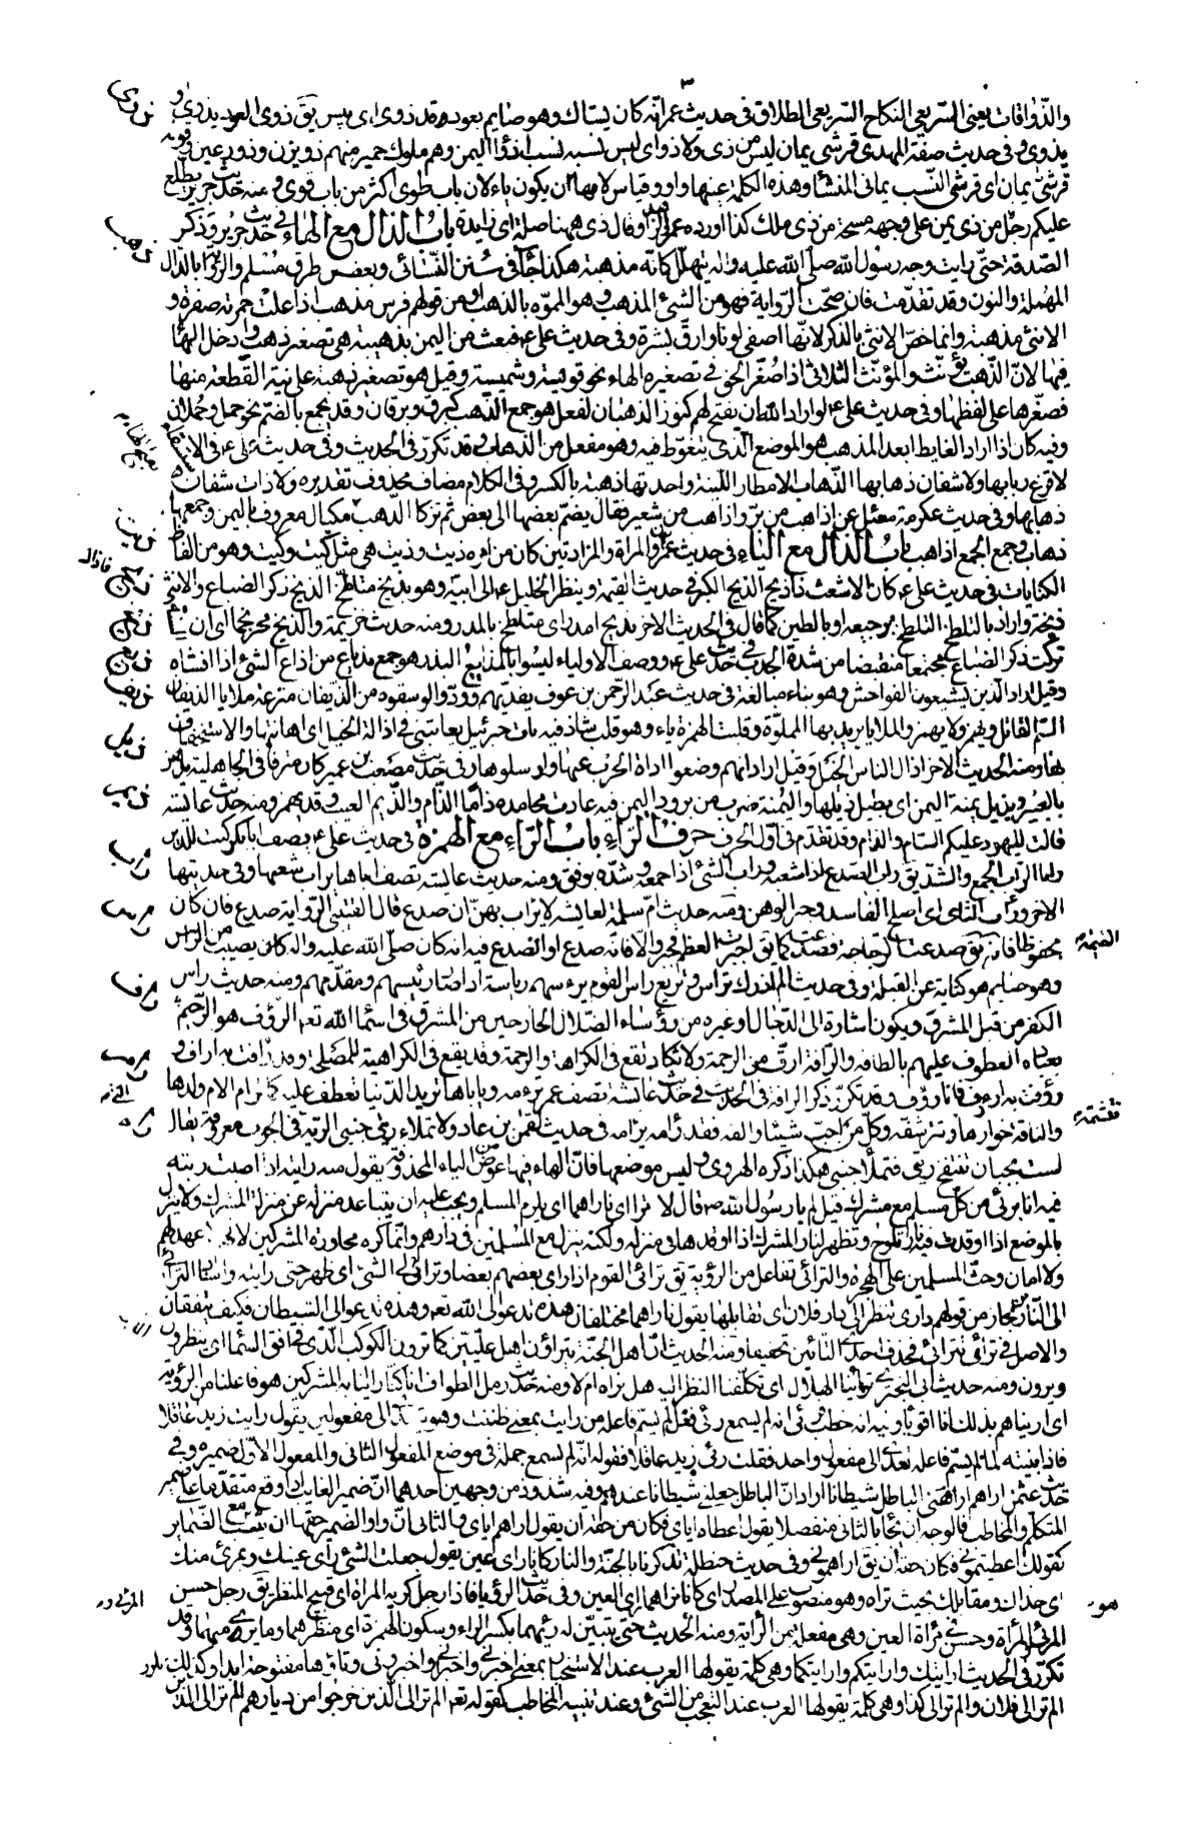 ٣
والذّوّاقات يعنى السّريعى النكاح السّريعى الطلاق فى حديث عمرانّه كان يستاك وهو صايم بعود قد ذوى اى يبس يق ذوى العود يذوى و
يذوى وفى حديث صفة المهدى قرشى يمان ليس من ذى ولا ذو اى ليس نسبه نسب اذواا اليمن وهم ملوك حمير منهم ذو يزن وذو رعين وقوله
قرشى يمان اى قرشى النّسب يمانى المنشأ وهذه الكلمة عينها واو وقياس لامها ان يكون ياء لان باب طوى اكثر من باب قوى وعنه حديث جرير يطلع
عليكم رجل من ذى يمن على وجهه مسحة من ذى ملك كذا اورده عمر الزاهد وقال ذى ههنا صلة اى زايدة باب الذال مع الهاء فى حديث جرير وذكر
الصّدقة حتى رايت وجه رسول الله صلّى الله عليه واله يتهلّل كانّه مذهبة هكذا جاا فى سنن النّسائى وبعض طرق مسلم والرواية بالدال
المهملة والنون وقد تقدّمت فان صحّت الرّواية فهو من الشئ المذهب وهو المموّه بالذهب او من قولهم فرس مذهب اذا علت حمرته صفرة و
الانثى مذهبة وانما خصّ الانثى بالذكر لانّها اصفى لونا وارقّ بشرة وفى حديث علىّ ع فبعث من اليمن بذهيبة هى تصغير ذهب وادخل الهاا
فيها لانّ الذّهب يؤنّث والمؤنّث الثلاثى اذا صُغّر الحق فى تصغيره الهاء نحو قويسة وشميسة وقيل هو تصغير ذهبة على نية القطعة منها
فصغّرها على لفظها وفى حديث علىّ ع لو اراد الله ان يفتح لهم كنوز الذهبان لفعل هو جمع الذّهب كبرق وبرقان وقد يجمع بالضم نحو حمل وحملان
وفيه كان اذا اراد الغايط ابعد المذهب هو الموضع الّذى يتغوّط فيه وهو مفعل من الذهاب وقد تكرّر فى الحديث وفى حديث على ع فى الاستسقاء
لا قزع ربابها ولا شفان ذهابها الذّهاب الامطار اللينة واحدتها ذهبة بالكسر وفى الكلام مضاف محذوف تقديره ولا ذات شفان
ذهابها وفى حديث عكرمة سئل عن اذاهب من برّ واذاهب من شعير فقال يضمّ بعضها الى بعض ثم تزكّا الذّهب مكيال معروف باليمن وجمعها
ذهاب وجمع الجمع اذاهب باب الذال مع الياء فى حديث عمران والمراة والمزادتين كان من امره ذيت وذيت هى مثل كيت وكيت وهو من الفاظ
الكنايات فى حديث علىّ ع كان الاشعث ذا ذيخ الذيخ الكبر فى حديث القيمة وينظر الخليل ع الى ابيه وهو بذيخ متلطخ الذيخ ذكر الضباع والانثى
ذيخة واراد بالتلطخ التلطخ برجيعه او بالطين كما قال فى الحديث الاخر بذيخ امدر اى متلطخ بالمدر ومنه حديث خزيمة والذيخ محرنجما اى ان السنة
تركت ذكر الضباع مجتمعا منقبضا من شدة الجدب فى حديث علىّ ع ووصف الاولياء ليسوا بالمذاييع البذر هو جمع مذياع من اذاع الشئ اذا افشاه
وقيل اراد الّذين يشيعون الفواحش وهو بناء مبالغة فى حديث عبد الرّحمن بن عوف يفدّيهم وودّوا لو سقوه من الذّيفان مترعة ملايا الذيفان
السّمّ القاتل ويهمز ولا يهمز والملايا يريد بها المملوّة وقلبت الهمزة ياء وهو قلب شاذ فيه بات جبرئيل يعاتبنى فى اذالة الخيل اى اهانتها والاستخفاف
بها ومنه الحديث الاخر اذال الناس الخيل وقيل ارادانّهم وضعوا اداة الحرب عنها وارسلوها وفى حديث مصعب بن عمير كان مترفا فى الجاهلية يدّهن
بالعبير ويذيل يمنة اليمن اى يطيل ذيلها واليُمنة ضرب من برود اليمن فيه عادت محامده ذامّا الذّام والذّيم العيب وقد يهمز ومنه حديث عائشة
قالت لليهود عليكم السّام والذام وقد تقدّم فى اوّل الحرف حرف الرّاء باب الرّاء مع الهمزة فى حديث علىّ ع يصف ابابكر كنت للدّين
رابا الرّاب الجمع والشدّ يق راب الصّدع اذا شعبه وراب الشئ اذا جمعه وشدّه بوفق ومنه حديث عائشة تصف اباها يراب شعبها وفى حديثها
الاخر وراب الثاى اى اصلح الفاسد وجبر الوهن ومنه حديث امّ سلمة لعايشة لا يراب بهنّ ان صدع قال القتيبى الرّواية صدع فان كان
محفوظا فانّه يق صدعت الزجاجة فصدعت كما يق جبرت العظم فجبر والّا فانّه صدع او انصدع فيه انه كان صلّى الله عليه واله كان يصيب من الراس
وهو صايم هو كناية عن القبلة وفى حديث القيمة الم اذرك تراس وتربع راس القوم يرءسهم رياسة اذا صار رئيسهم ومقدّمهم ومنه حديث راس
الكفر من قبل المشرق ويكون اشارة الى الدّجال او غيره من رؤساء الضّلال الخارجين من المشرق فى اسماا الله تعه الرّؤف هو الرّحيم
بعباده العطوف عليهم بالطافه والرّافة ارقّ من الرحمة ولا تكاد تقع فى الكراهة والرحمة وقد يقع فى الكراهية للمصلحة وقد رافت به اراف و
رؤفت به ارءوف فانا رؤف وقد تكرّر ذكر الرافة فى الحديث فى حديث عائشة تصف عمر ترءمه وياباها تريد الدّنيا تعطف عليه كما ترام الام ولدها
والناقة حوارها وتشمّه وتترشفه وكلّ من احبّ شيئا والفه فقد رئمه يرامه فى حديث لقمن بن عاد ولا تملاء رئتى جنبى الرّية فى الجوف معروفة يقال
لست بجبان تنتفخ رئتى فتملا جنبى هكذا ذكره الهروى وليس موضعها فانّ الهاء فيها عوض من الياء المحذوفة يقول منه رايته اذا اصبت ريته
فيه انا برئ من كلّ مسلم مع مشرك قيل لم يا رسول الله ص قال لا تراءى ناراهما اى يلزم المسلم ويجب عليه ان يتباعد منزله عن منزل المشرك ولا ينزل
بالموضع الذى اذا اوقدت فيه ناره تلوح وتظهر لنار المشرك اذا اوقدها فى منزله ولكنّه ينزل مع المسلمين فى دارهم وانّما كره مجاورة المشركين لانّهم لا عهد لهم
ولا امان وحثّ المسلمين على الهجرة والترائى تفاعل من الرؤية يق ترائى القوم اذا راى بعضهم بعضا وترائى لى الشئ اى ظهر حتى رايته واسناد الترائى
الى النّارين مجاز من قولهم دارى تنظر الى دار فلان اى تقابلها يقول ناراهما مختلفان هذه تدعو الى الله تعه وهذه تدعو الى الشيطان فكيف يتّفقان
والاصل فى ترائى تترائى فحذف احدى التائين تخفيفا ومنه الحديث انّ اهل الجنّة ليتراؤن اهل علّيّين كما ترون الكوكب الدّرى فى افق السّماا اى ينظرون
ويرون ومنه حديث ابى البخترى تراينا الهلال اى تكلّفنا النظر اليه هل نراه ام لا ومنه حديث رمل الطواف انما كنّا راينا به المشركين هو فاعلنا من الرؤية
اى اريناهم بذلك انّا اقوياا وفيه انه خطب فرئى انه لم يسمع رئى فعل لم يسمّ فاعله من رايت بمعنى ظننت وهو يتعدّى الى مفعولين يقول رايت زيدا عاقلا
فاذا بنيته لما لم يسمّ فاعله تعدّى الى مفعول واحد فقلت رئى زيد عاقلا فقوله انّه لم يسمع جملة فى موضع المفعول الثانى والمفعول الاوّل ضميره وفى
حديث عثمن اراهم اراهمنى الباطل شيطانا اراد انّ الباطل جعلنى شيطانا عندهم وفيه شذوذ من وجهين احدهما انّ ضمير الغايب اذا وقع متقدّما على ضمير
المتكلّم والمخاطب فالوجه ان يجاا بالثانى منفصلا يقول اعطاه اياى فكان من حقّه ان يقول اراهم اياى والثانى انّ واو الضمير حقّها ان تثبت مع الضماير
كقولك اعطيتمونى فكان حقّه ان يق اراهمونى وفى حديث حنظلة تذكّرنا بالجنّة والنار كانّا راى عين يقول جعلت الشئ راى عينك وبمرءى منك
اى حذاك ومقابلك بحيث تراه وهو منصوب على المصدر اى كانا نراهما راى العين وفى حديث الرؤيا فاذا رجل كريه المراة اى قبيح المنظر يق رجل حسن
المرئى والمراة وحسن فى مراة العين وهى مفعلة من الرّاية ومنه الحديث حتى يتبيّن له رئيهما بكسر الراء وسكون الهمزة اى منظرهما وما يرى منهما وقد
تكرّر فى الحديث ارايتك وارايتكم وارايتكما وهى كلمة يقولها العرب عند الاستخبار بمعنى اخبرنى واخبرانى واخبرونى وتاؤها مفتوحة ابدا وكذلك تكرّر
الم تر الى فلان والم تر الى كذا وهى كلمة يقولها العرب عند التعجب من الشئ وعند تنبيه المخاطب كقوله تعه الم تر الى الذين خرجوا من ديارهم الم تر الى الذين